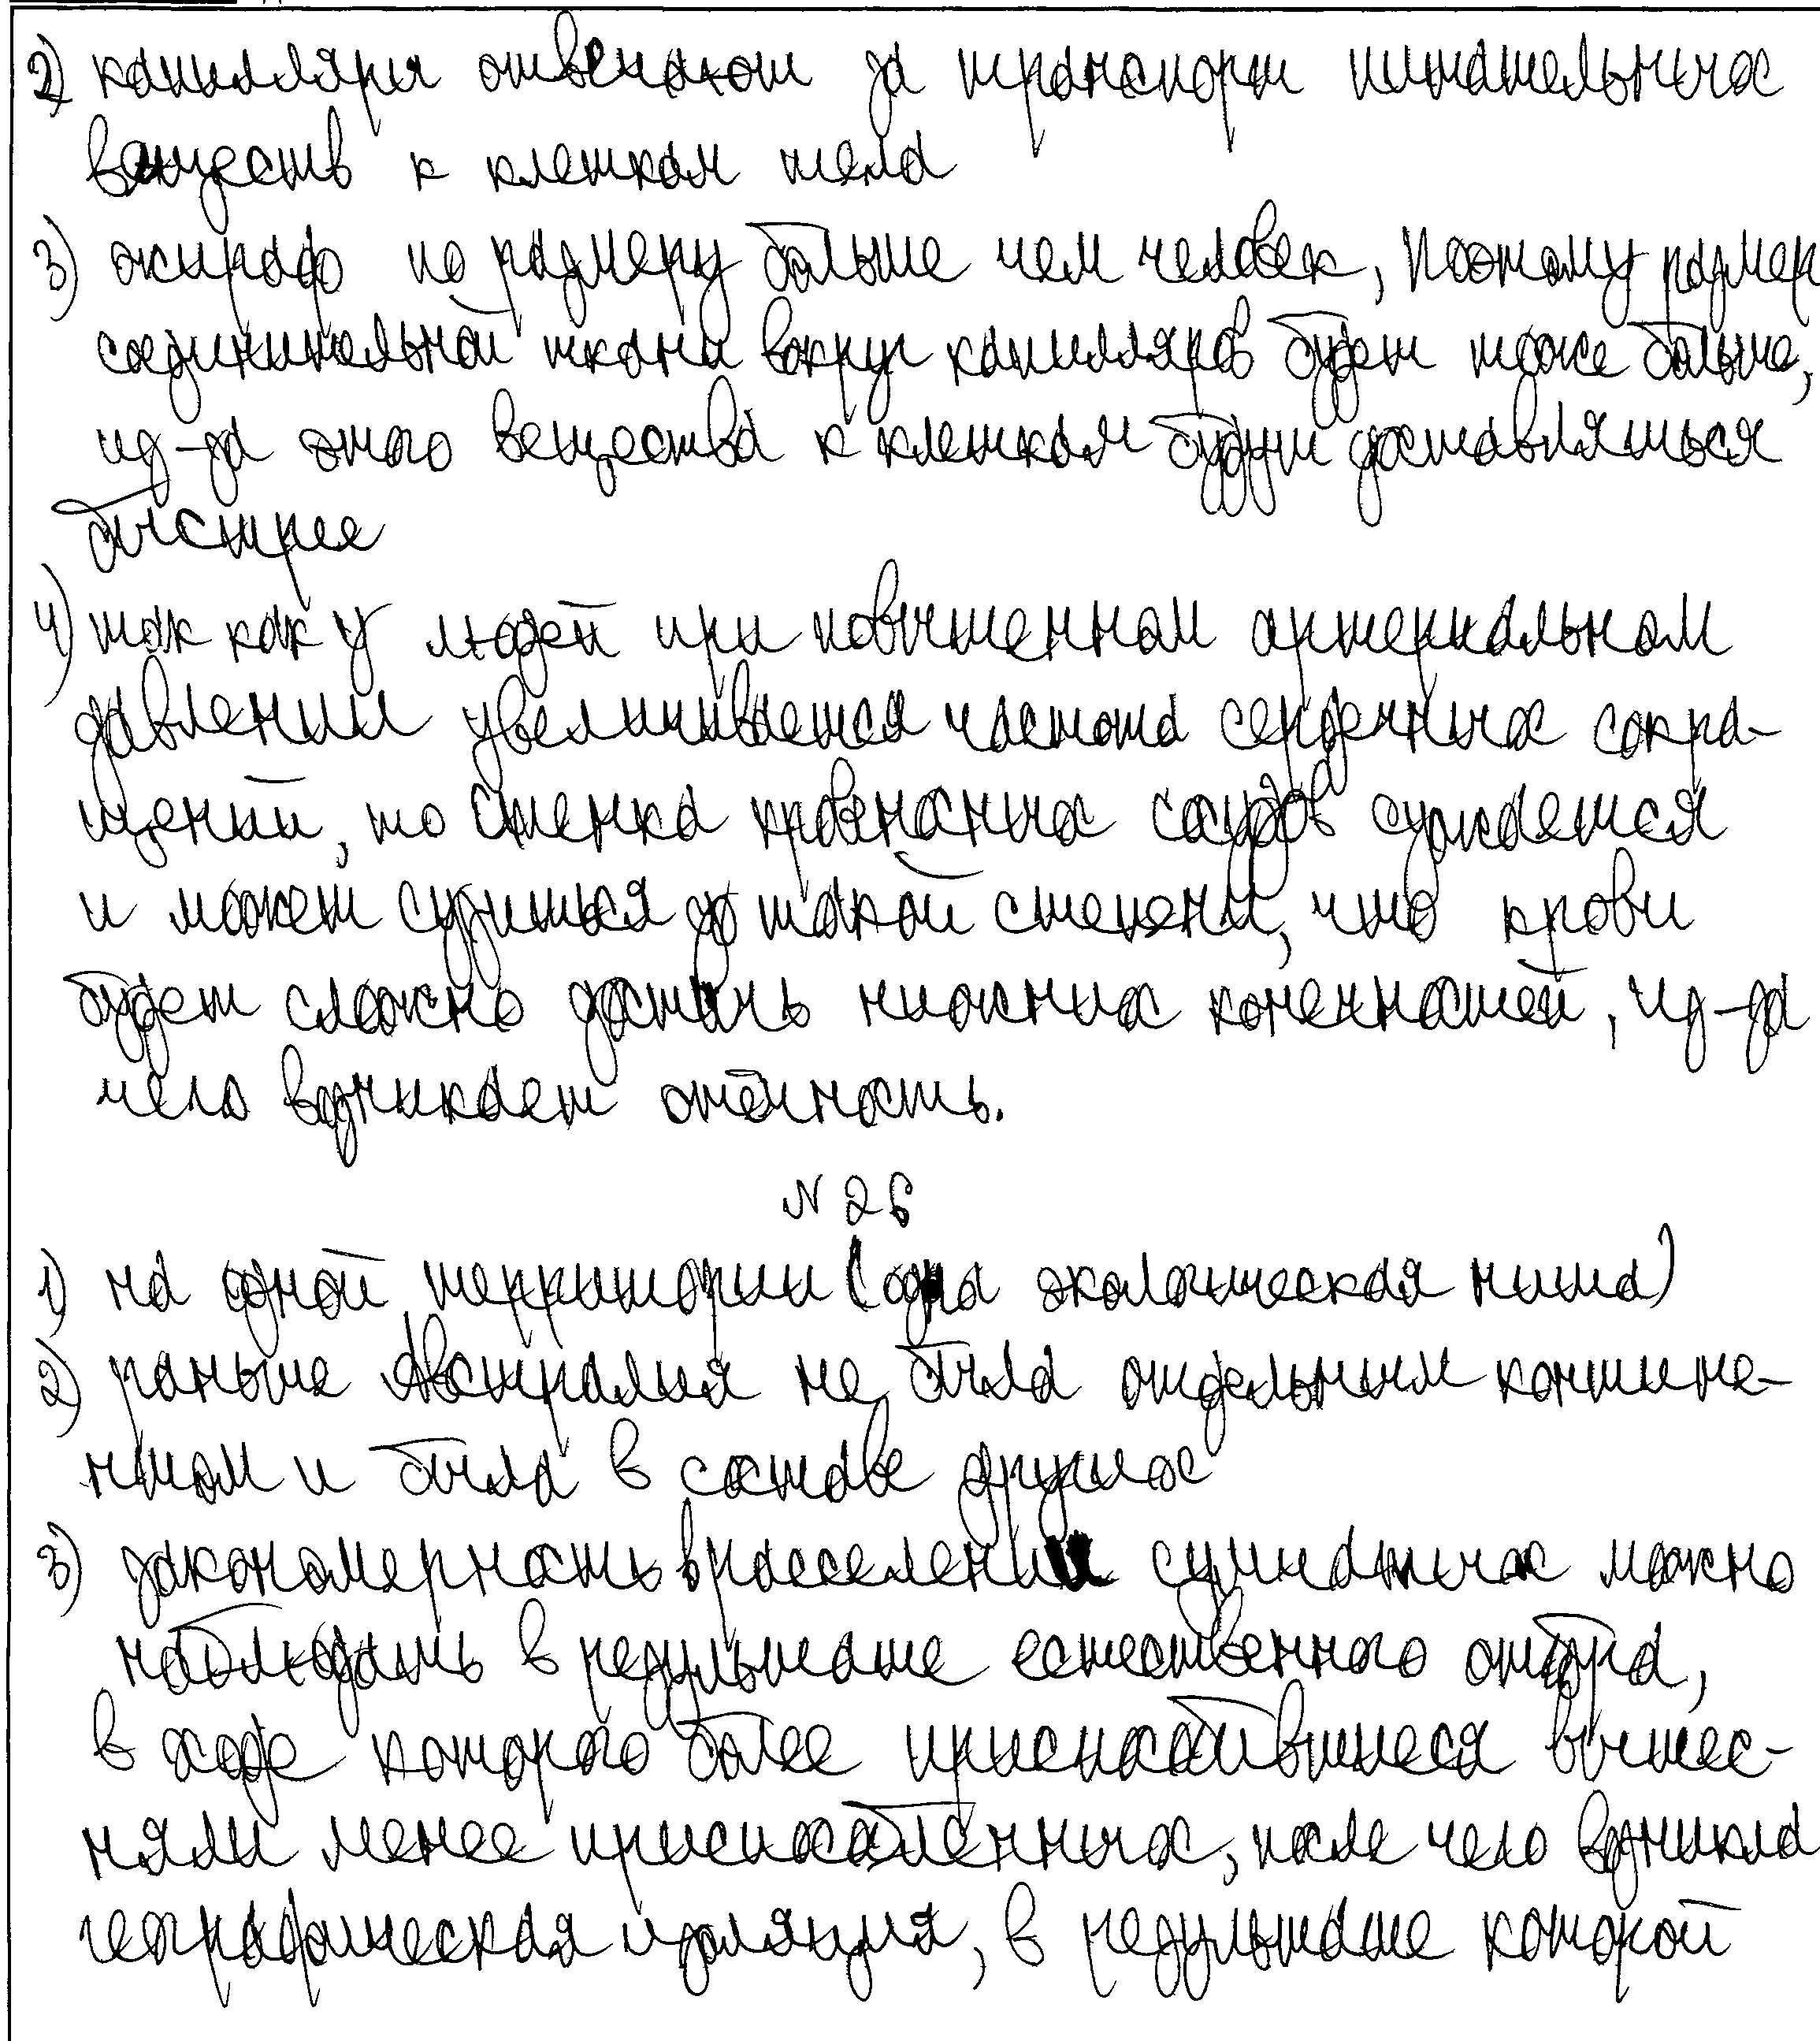 2) капилляры отвечают за транспорт питательных
веществ к клеткам тела
3) жираф по размеру больше чем человек, поэтому размер
соединительной ткани вокруг капилляров будет тоже больше,
из-за этого вещества к клеткам будут доставляться
быстрее
4) так как у людей при повышенном артериальном
давлении увеличивается частота сердечных сокра-
щений, то стенка кровеносных сосудов сужается
и может сузиться до такой степени, что крови
будет сложно достичь нижних конечностей, из-за
чего возникает отёчность.
N 26
1) на одной территории (одна экологическая ниша)
2) раньше Австралия не была отдельным контине-
нтом и была в составе других
3) закономерность в расселении сумчатых можно
наблюдать в результате естественного отбора,
в ходе которого более приспособившиеся вытес-
няли менее приспособленных, после чего возникла
географическая изоляция, в результате которой